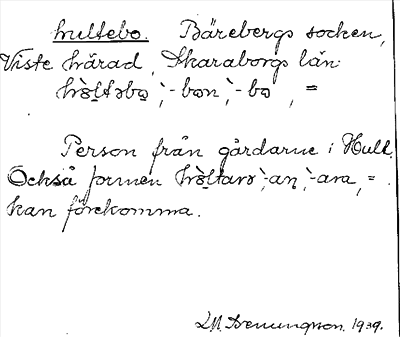 hultebo. Bärebergs socken,
Viste härad, Skaraborgs län.
hòltəbo̱, -bon, -bo, =
Person från gårdarne i Hult.
Också formen hòltarə, -aṉ, -ara, =.
kan förekomma.
1939.